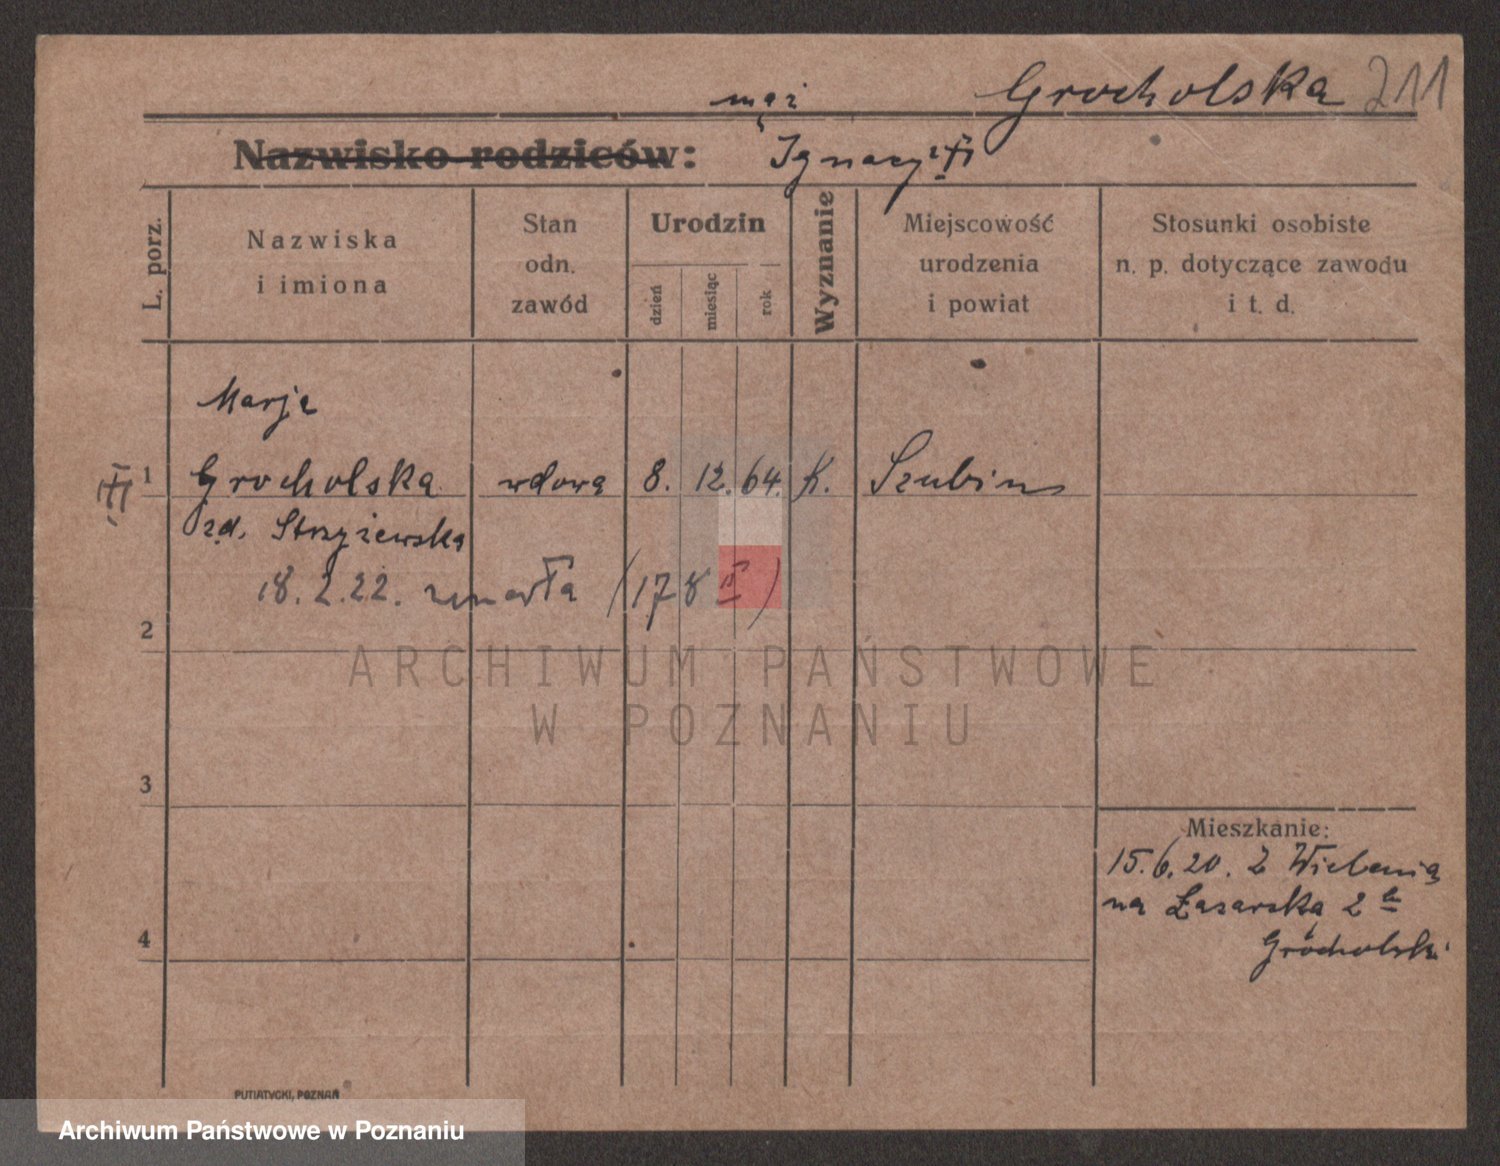 Grocholska 211
mąż
Nazwisko rodziców: Ignacy
L. porz.
Nazwiska
i imiona
Stan
odn.
zawód
Urodzin
dzień
miesiąc
rok
Wyznanie
Miejscowość
urodzenia
i powiat
Stosunki osobiste
n. p. dotyczące zawodu
i t. d.
Marja
1 Grocholska wdowa 8. 12. 64. k. Szubin
zd. Strzyżewska
18.2.22. zmarła (178 II)
2
3
4
Mieszkanie:
15.6.20. Z Wielenia
na Łazarska 2 a
Grocholski
PUTIATYCKI, POZNAŃ
ARCHIWUM PAŃSTWOWE
W POZNANIU
Archiwum Państwowe w Poznaniu